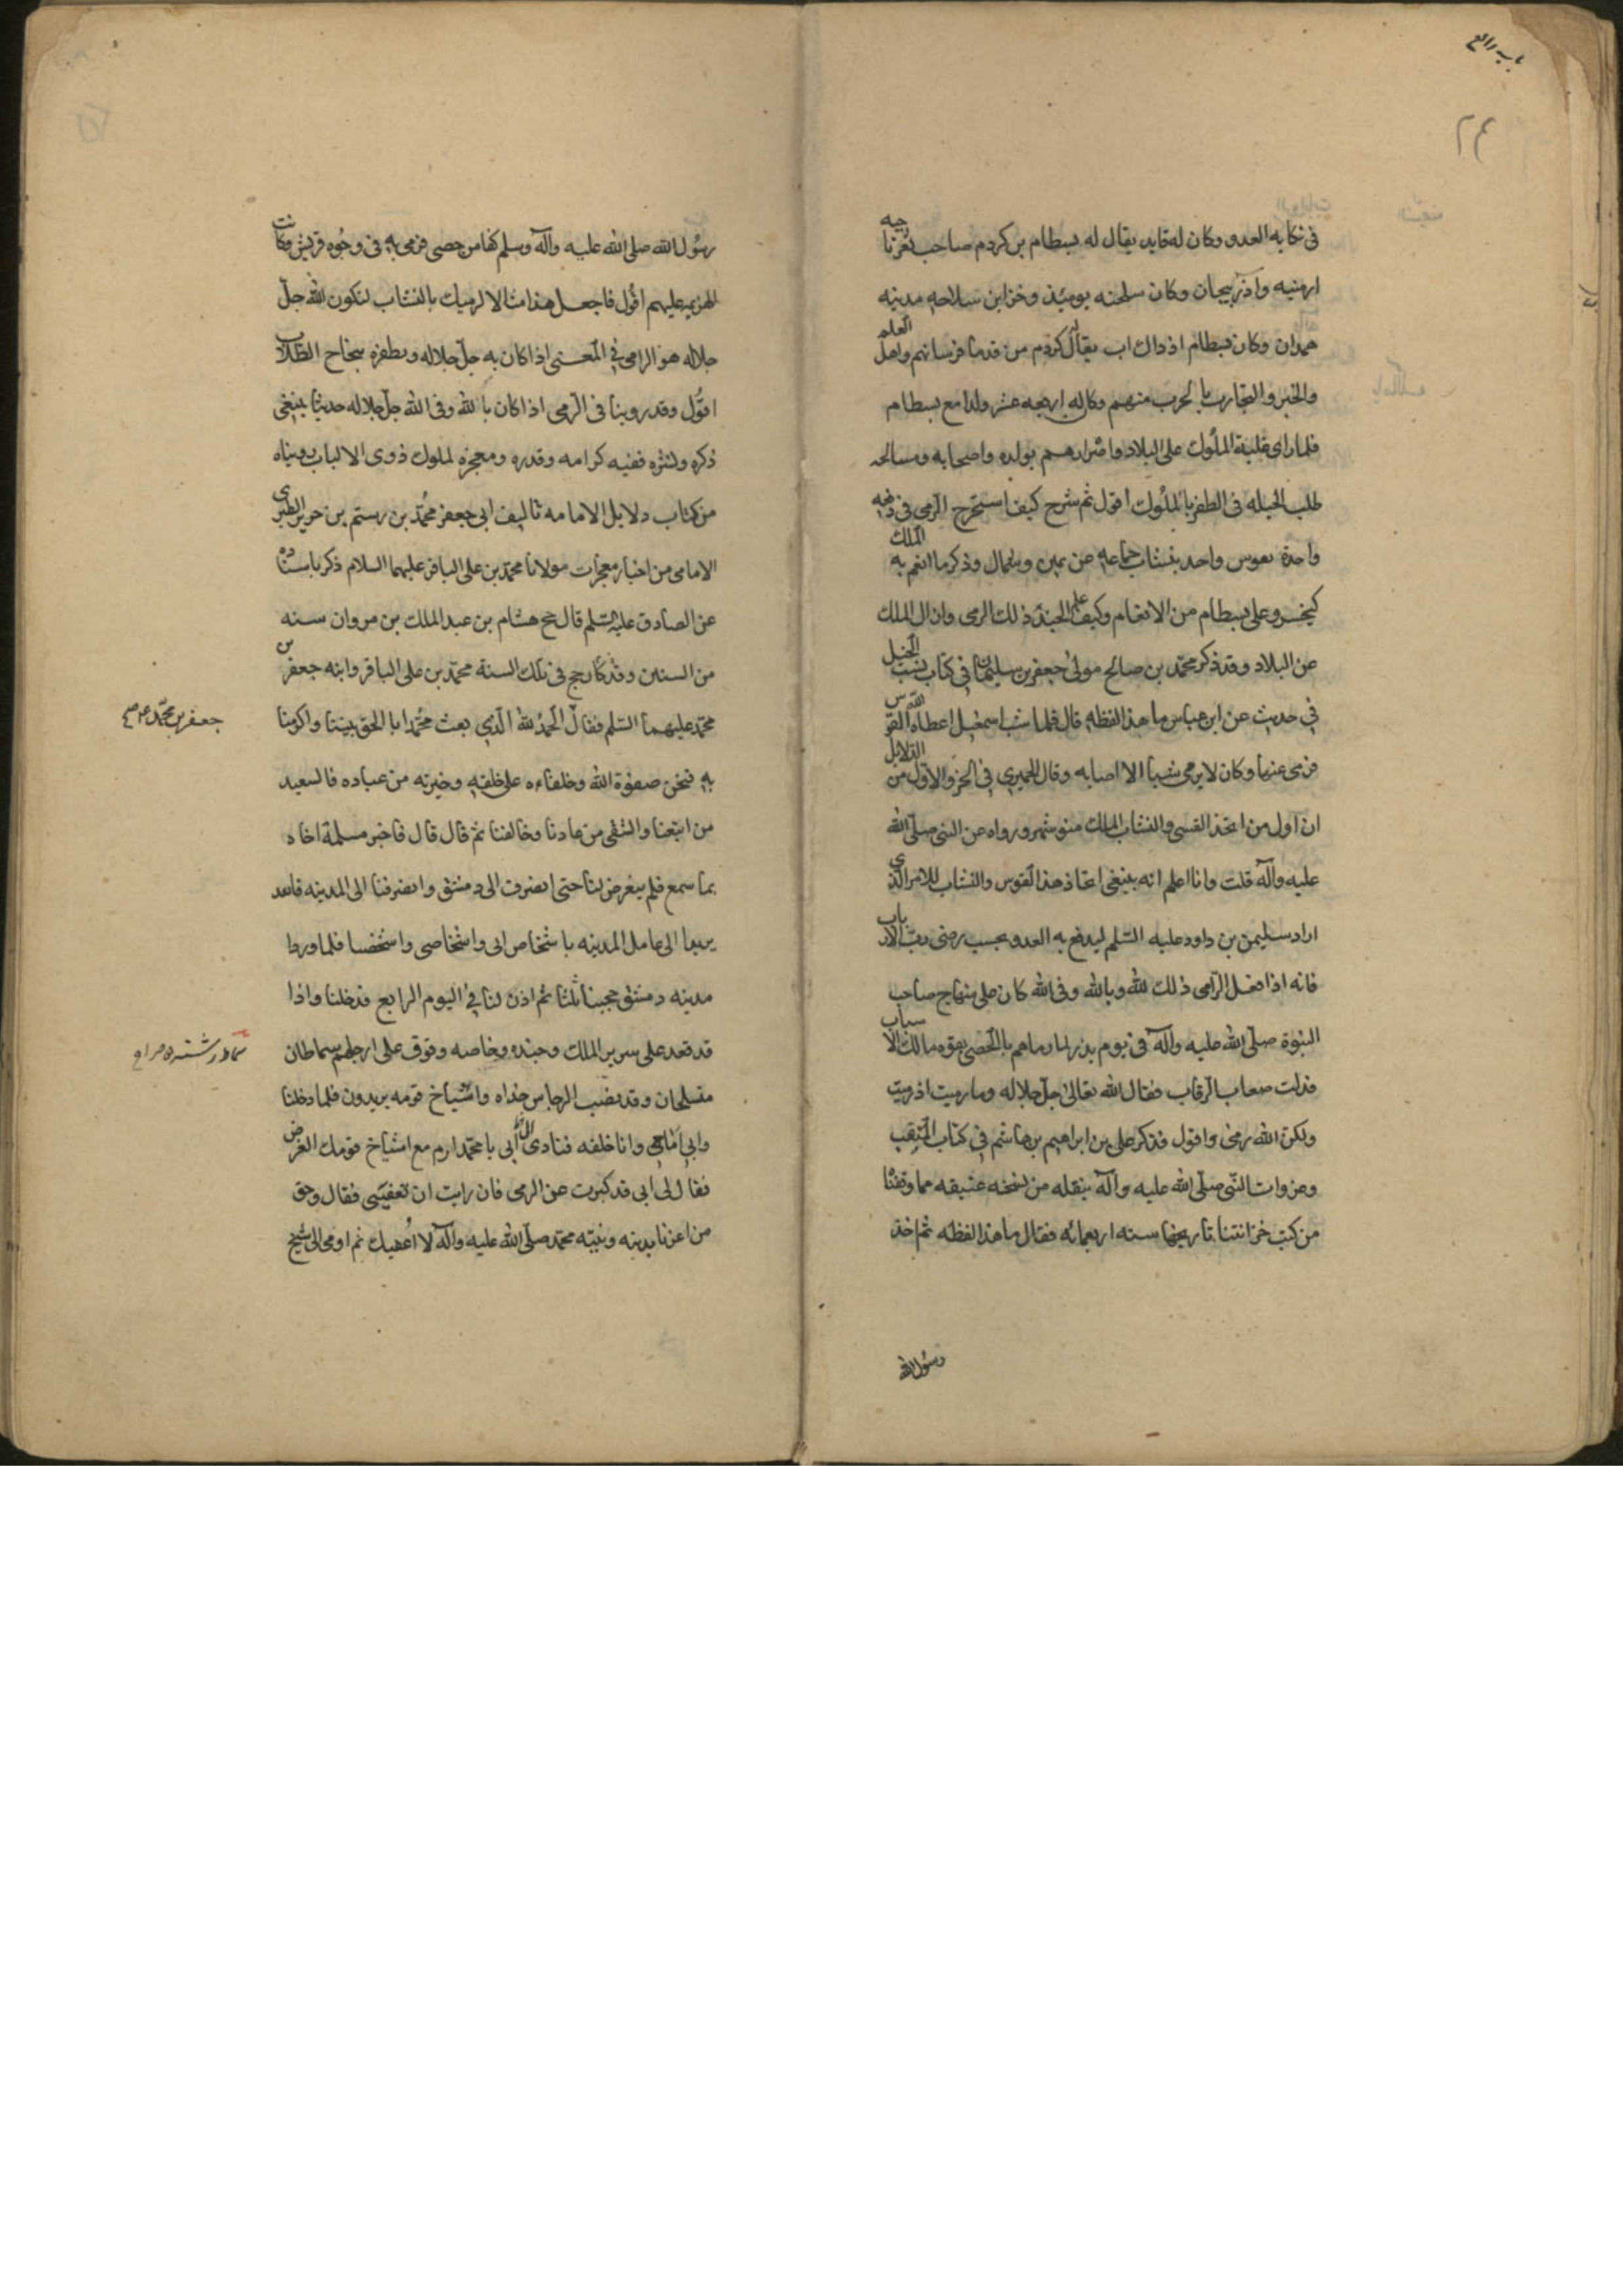 باب رابع
٢٤
فى نكايه العدو وكان له قايد يقال له بسطام بن كردم صاحب ثغرنا
ارمنيه واذربيجان وكان سلحته يومئذ وخزاين سلاحه مدينه
همدان وكان لبسطام اذ ذاك اب يقال له كردم من قدما فرسانهم واهل العلم
والخبر والتجارب بالحرب منهم وكان له اربعه عشر ولدا مع بسطام
فلما راى غلبة الملوك على البلاد واضرارهم بولده واصحابه ومسالحه
طلب الحيله فى الظفر بالملوك اقول ثم شرح كيف استخرج الرمى فى
واحدة بقوس واحد بنشاب جماعه عن يمين وشمال وذكر ما انعم به الملك
كيخسرو على بسطام من الانعام وكيف علم الجند ذلك الرمى وازال الملك
عن البلاد وقد ذكر محمد بن صالح مولى جعفر بن سليمان فى كتاب نسب الخيل
فى حديث عن ابن عباس ما هذا لفظه قال فلما شب اسمعيل اعطاه الله القوس
فرمى عنها وكان لا يرمى شيئا الا اصابه وقال الحميرى فى الجزو الاول من الدلايل
ان اول من اتخذ القسى والنشاب الملك منوشهر ورواه عن النبى صلى الله
عليه وآله قلت وانا اعلم انه ينبغى اتخاذ هذا القوس والنشاب للامر الذى
اراد سليمن بن داود عليه السلم ليدفع به العدو بحسب رضى رب الارباب
فانه اذا فعل الرامى ذلك لله وبالله وفى الله كان على منهاج صاحب
النبوة صلى الله عليه وآله فى يوم بدر لما رماهم بالحصى بقوه مالك الاسباب
فذلت صعاب الرقاب فقال الله تعالى جل جلاله وما رميت اذ رميت
ولكن الله رمى واقول فذكر على بن ابراهيم بن هاشم فى كتاب المنقب
وغزوات النبى صلى الله عليه وآله بنقله من نسخه عتيقه مما وقفنا
من كتب خزانتنا تاريخها سنه اربعمائه فقال ما هذا لفظه ثم اخذ
رسول الله
رسول الله صلى الله عليه وآله وسلم كفا من حصى فرمى به فى وجوه قريش وكانت
الهزيمه عليهم اقول فاجعل هذا مثالا لرميك بالنشاب لتكون الله جل
جلاله هو الرامى فى المعنى اذا كان به جل جلاله وتظفره بنجاح الطلاب
اقول وقد روينا فى الرمى اذا كان بالله وفى الله جل جلاله حديثا ينبغى
ذكره ونشره ففيه كرامه وقدره ومعجزه لملوك ذوى الالباب رويناه
من كتاب دلايل الامامه تاليف ابى جعفر محمد بن رستم بن جرير الطبرى
الامامى من اخبار معجزات مولانا محمد بن على الباقر عليهما السلام ذكر باسناده
عن الصادق عليه السلم قال حج هشام بن عبد الملك بن مروان سنه
من السنين وقد كان حج فى تلك السنة محمد بن على الباقر وابنه جعفر بن
محمد عليهما السلم فقال الحمد لله الذي بعث محمدا بالحق نبينا واكرمنا
به فنحن صفوة الله وخلفاءه على خلقه وخيرته من عباده فالسعيد
من اتبعنا والشقى من عادنا وخالفنا ثم قال قال فاخبر مسلمة اخاه
بما سمع فلم يعرض لنا حتى انصرف الى دمشق وانصرفنا الى المدينه فانفد
بريدا الى عامل المدينه باشخاص ابى واشخاصى واشخصنا فلما وردا
مدينه دمشق حجبنا ثلثا ثم اذن لنا فى اليوم الرابع فدخلنا واذا
قد قعد على سرير الملك وجنده وخاصه وقوف على ارجلهم سماطان
متسلحان وقد نصب البرجاس حذاه واشياخ قومه يرمون فلما دخلنا
وابى امامى وانا خلفه فنادى الى ابى يا محمد ارم مع اشياخ قومك الغرض
فقال لى ابى قد كبرت عن الرمى فان رايت ان تعفينى فقال وحق
من اعزنا بدينه ونبيه محمد صلى الله عليه وآله لا اعفيك ثم اومى الى شيخ
جعفر بن محمد